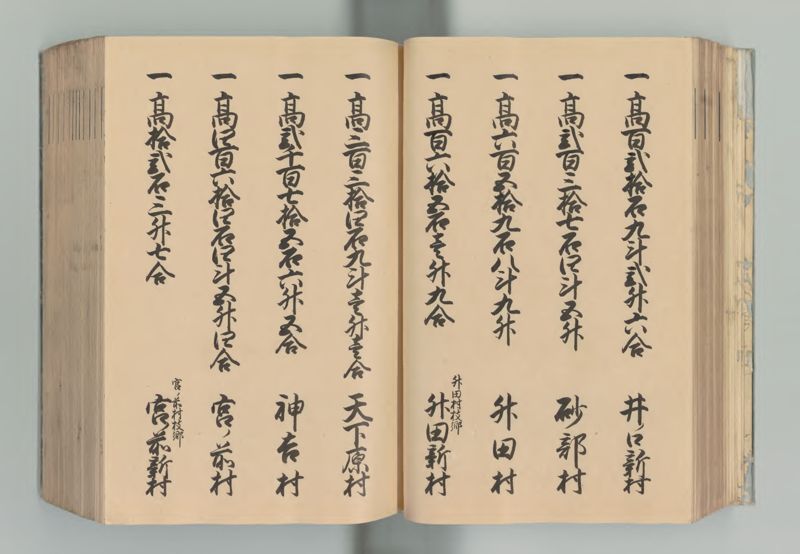 一 高百弐拾石九斗弐升六合 井ノ口新村
一 高弐百三拾七石四斗五升 砂部村
一 高六百五拾九石八斗九升 升田村
一 高百六拾五石壱升九合 升田村枝郷 升田新村
一 高三百三拾四石九斗壱升壱合 天下原村
一 高弐千百七拾五石六升五合 神吉村
一 高四百六拾四石四斗五升四合 宮ノ前村
一 高拾弐石三升七合 宮ノ前村枝郷 宮前新村